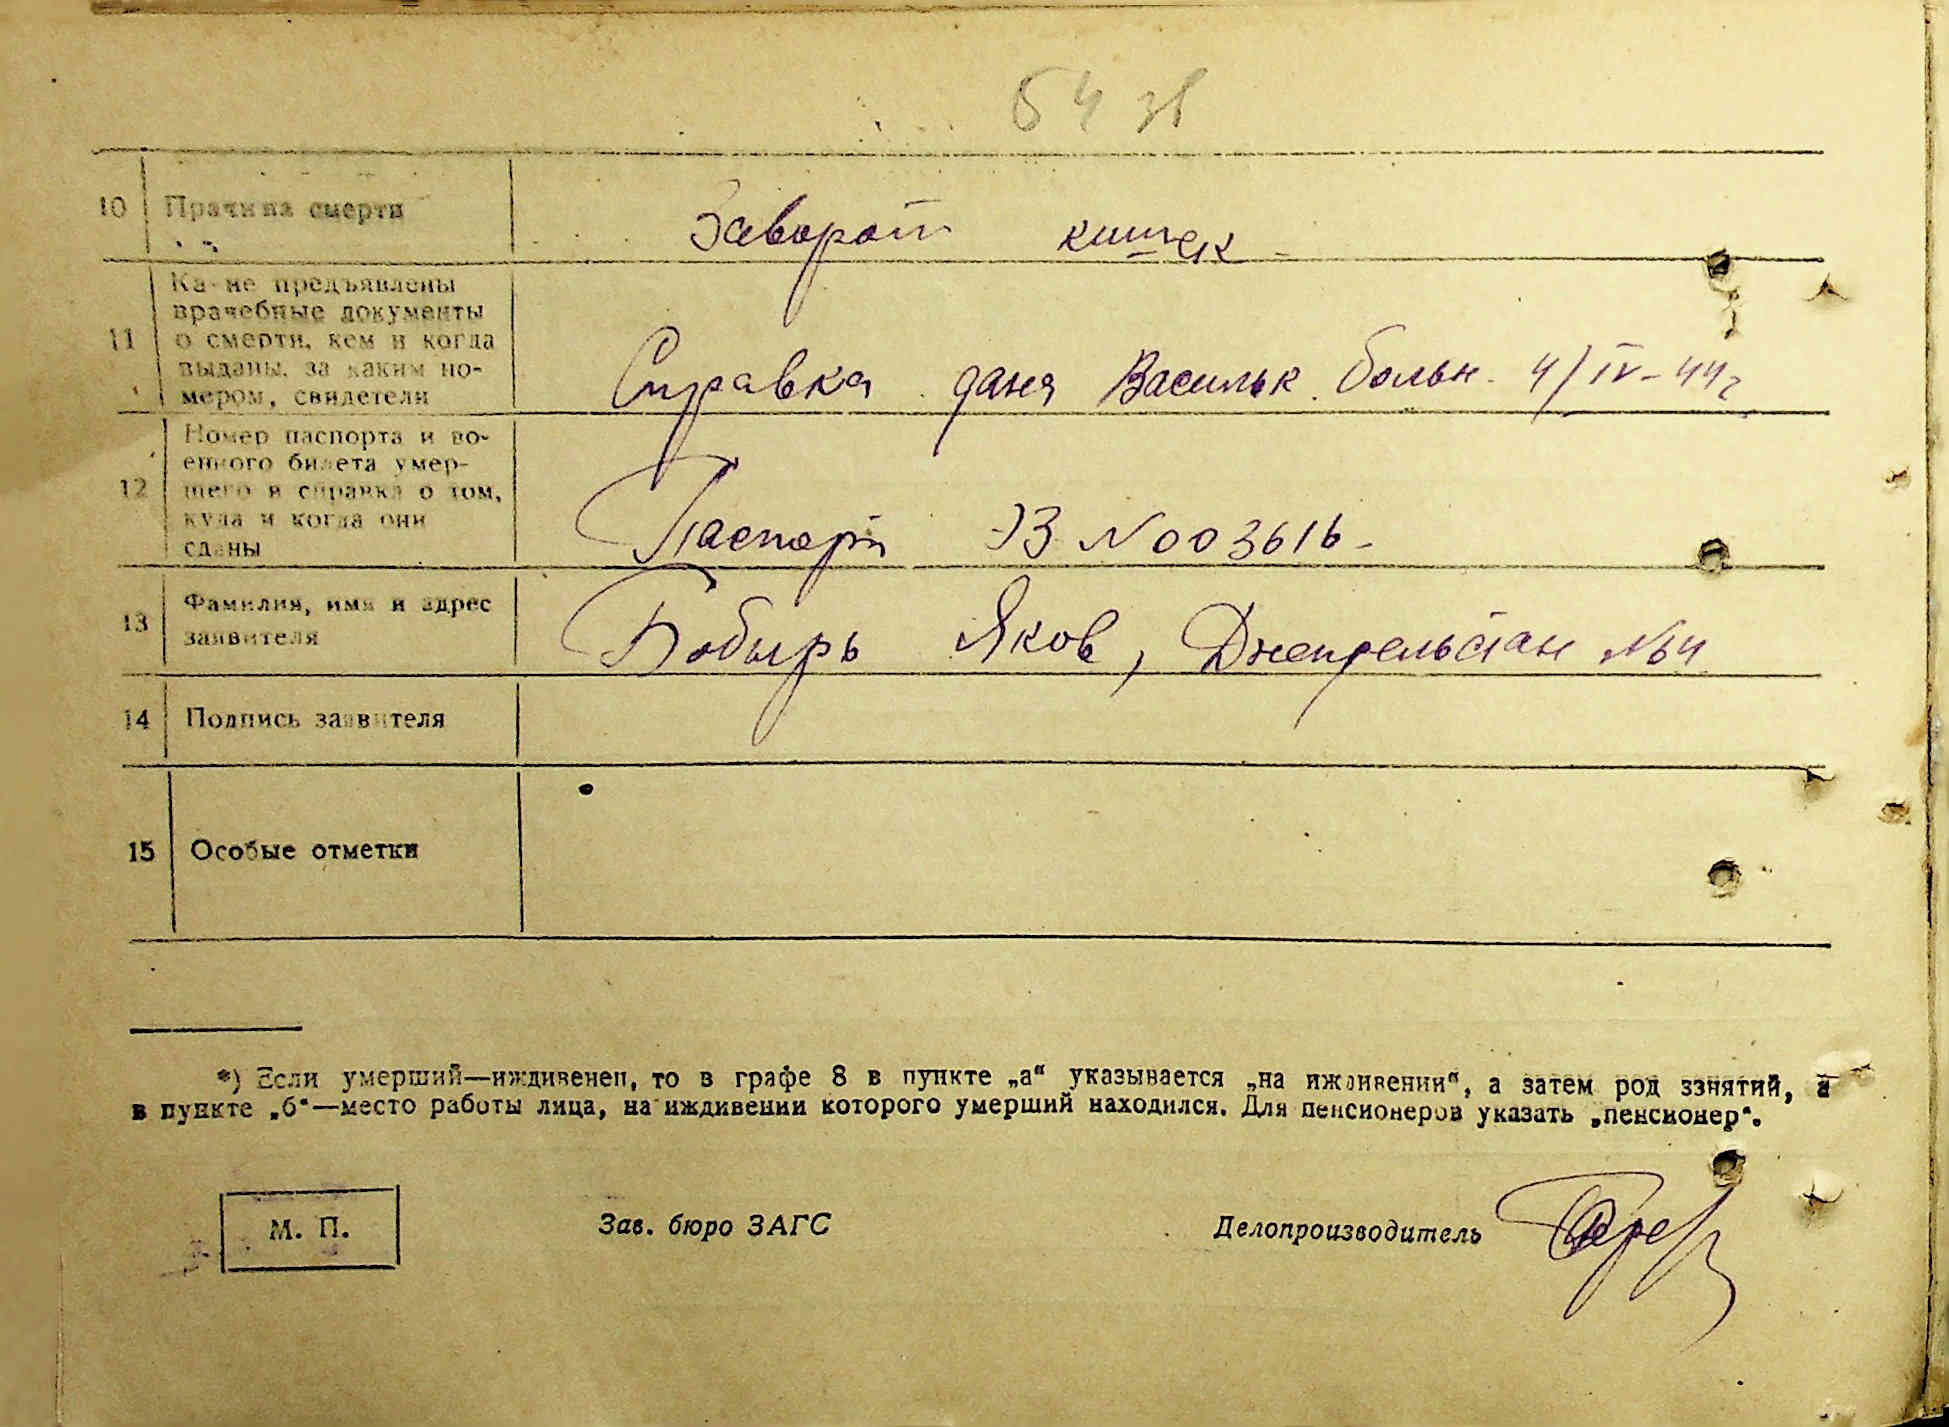 54 зв
10 Причина смерти Заворот кишек -
11 Какие предъявлены врачебные документы о смерти, кем и когда выданы, за каким но-
мером, свидетели Справка дана Васильк. больн. 4/IV-44г
12 Номер паспорта и во-
енного билета умер-
шего и справка о том,
куда и когда они
сданы Паспорт ЭЗ №003616-
13 Фамилия, имя и адрес
заявителя Бобырь Яков, Днепрельстан №64
14 Подпись заявителя
15 Особые отметки
*) Если умерший—иждивенец, то в графе 8 в пункте „а“ указывается „на иждивении“, а затем род занятий, а
в пункте „б“—место работы лица, на иждивении которого умерший находился. Для пенсионеров указать „пенсионер“.
М. П. Зав. бюро ЗАГС Делопроизводитель